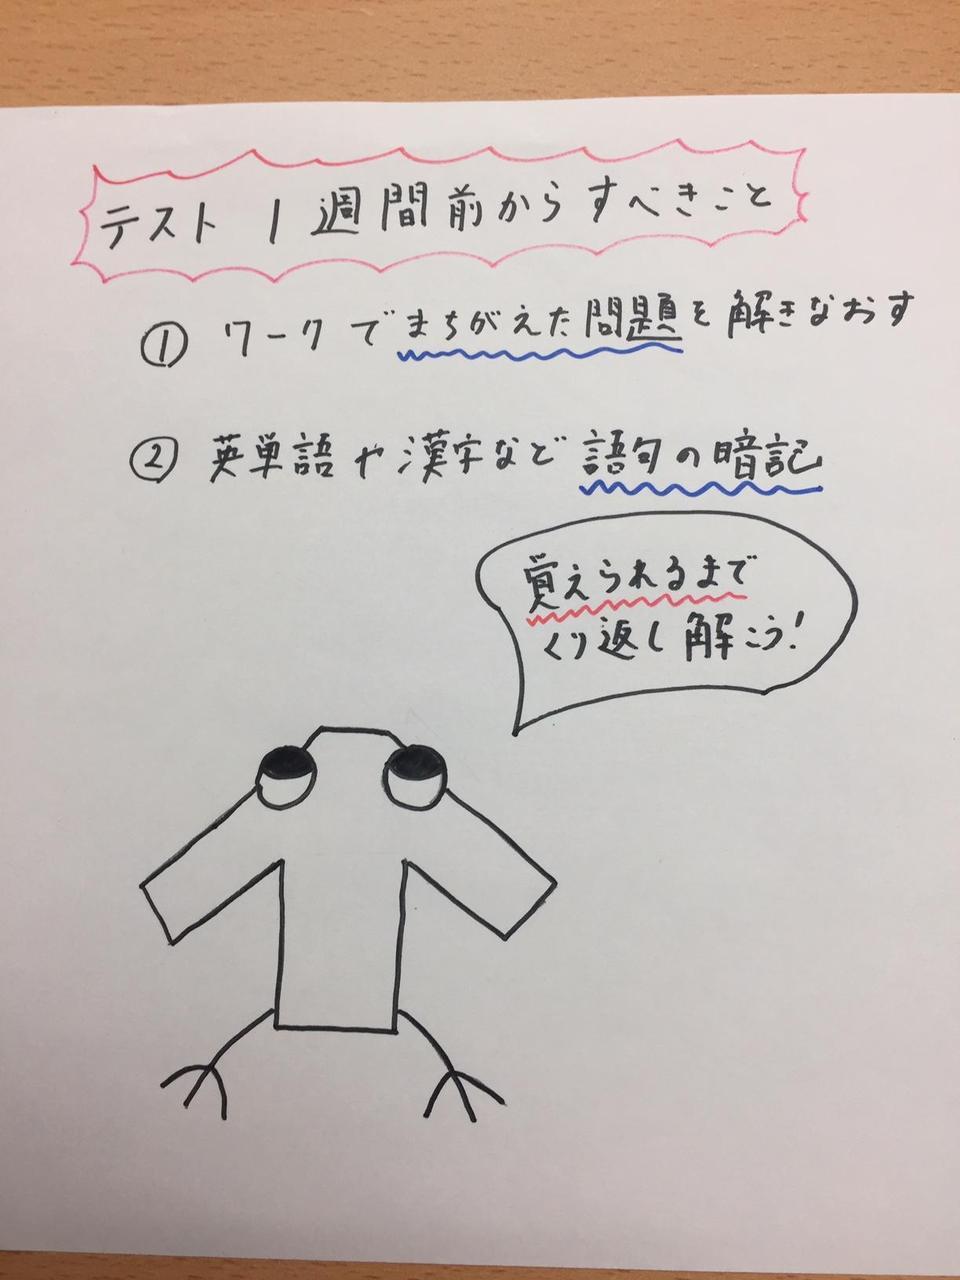 テスト1週間前からすべきこと
① ワークでまちがえた問題を解きなおす
② 英単語や漢字など語句の暗記
覚えられるまで
くり返し解こう!